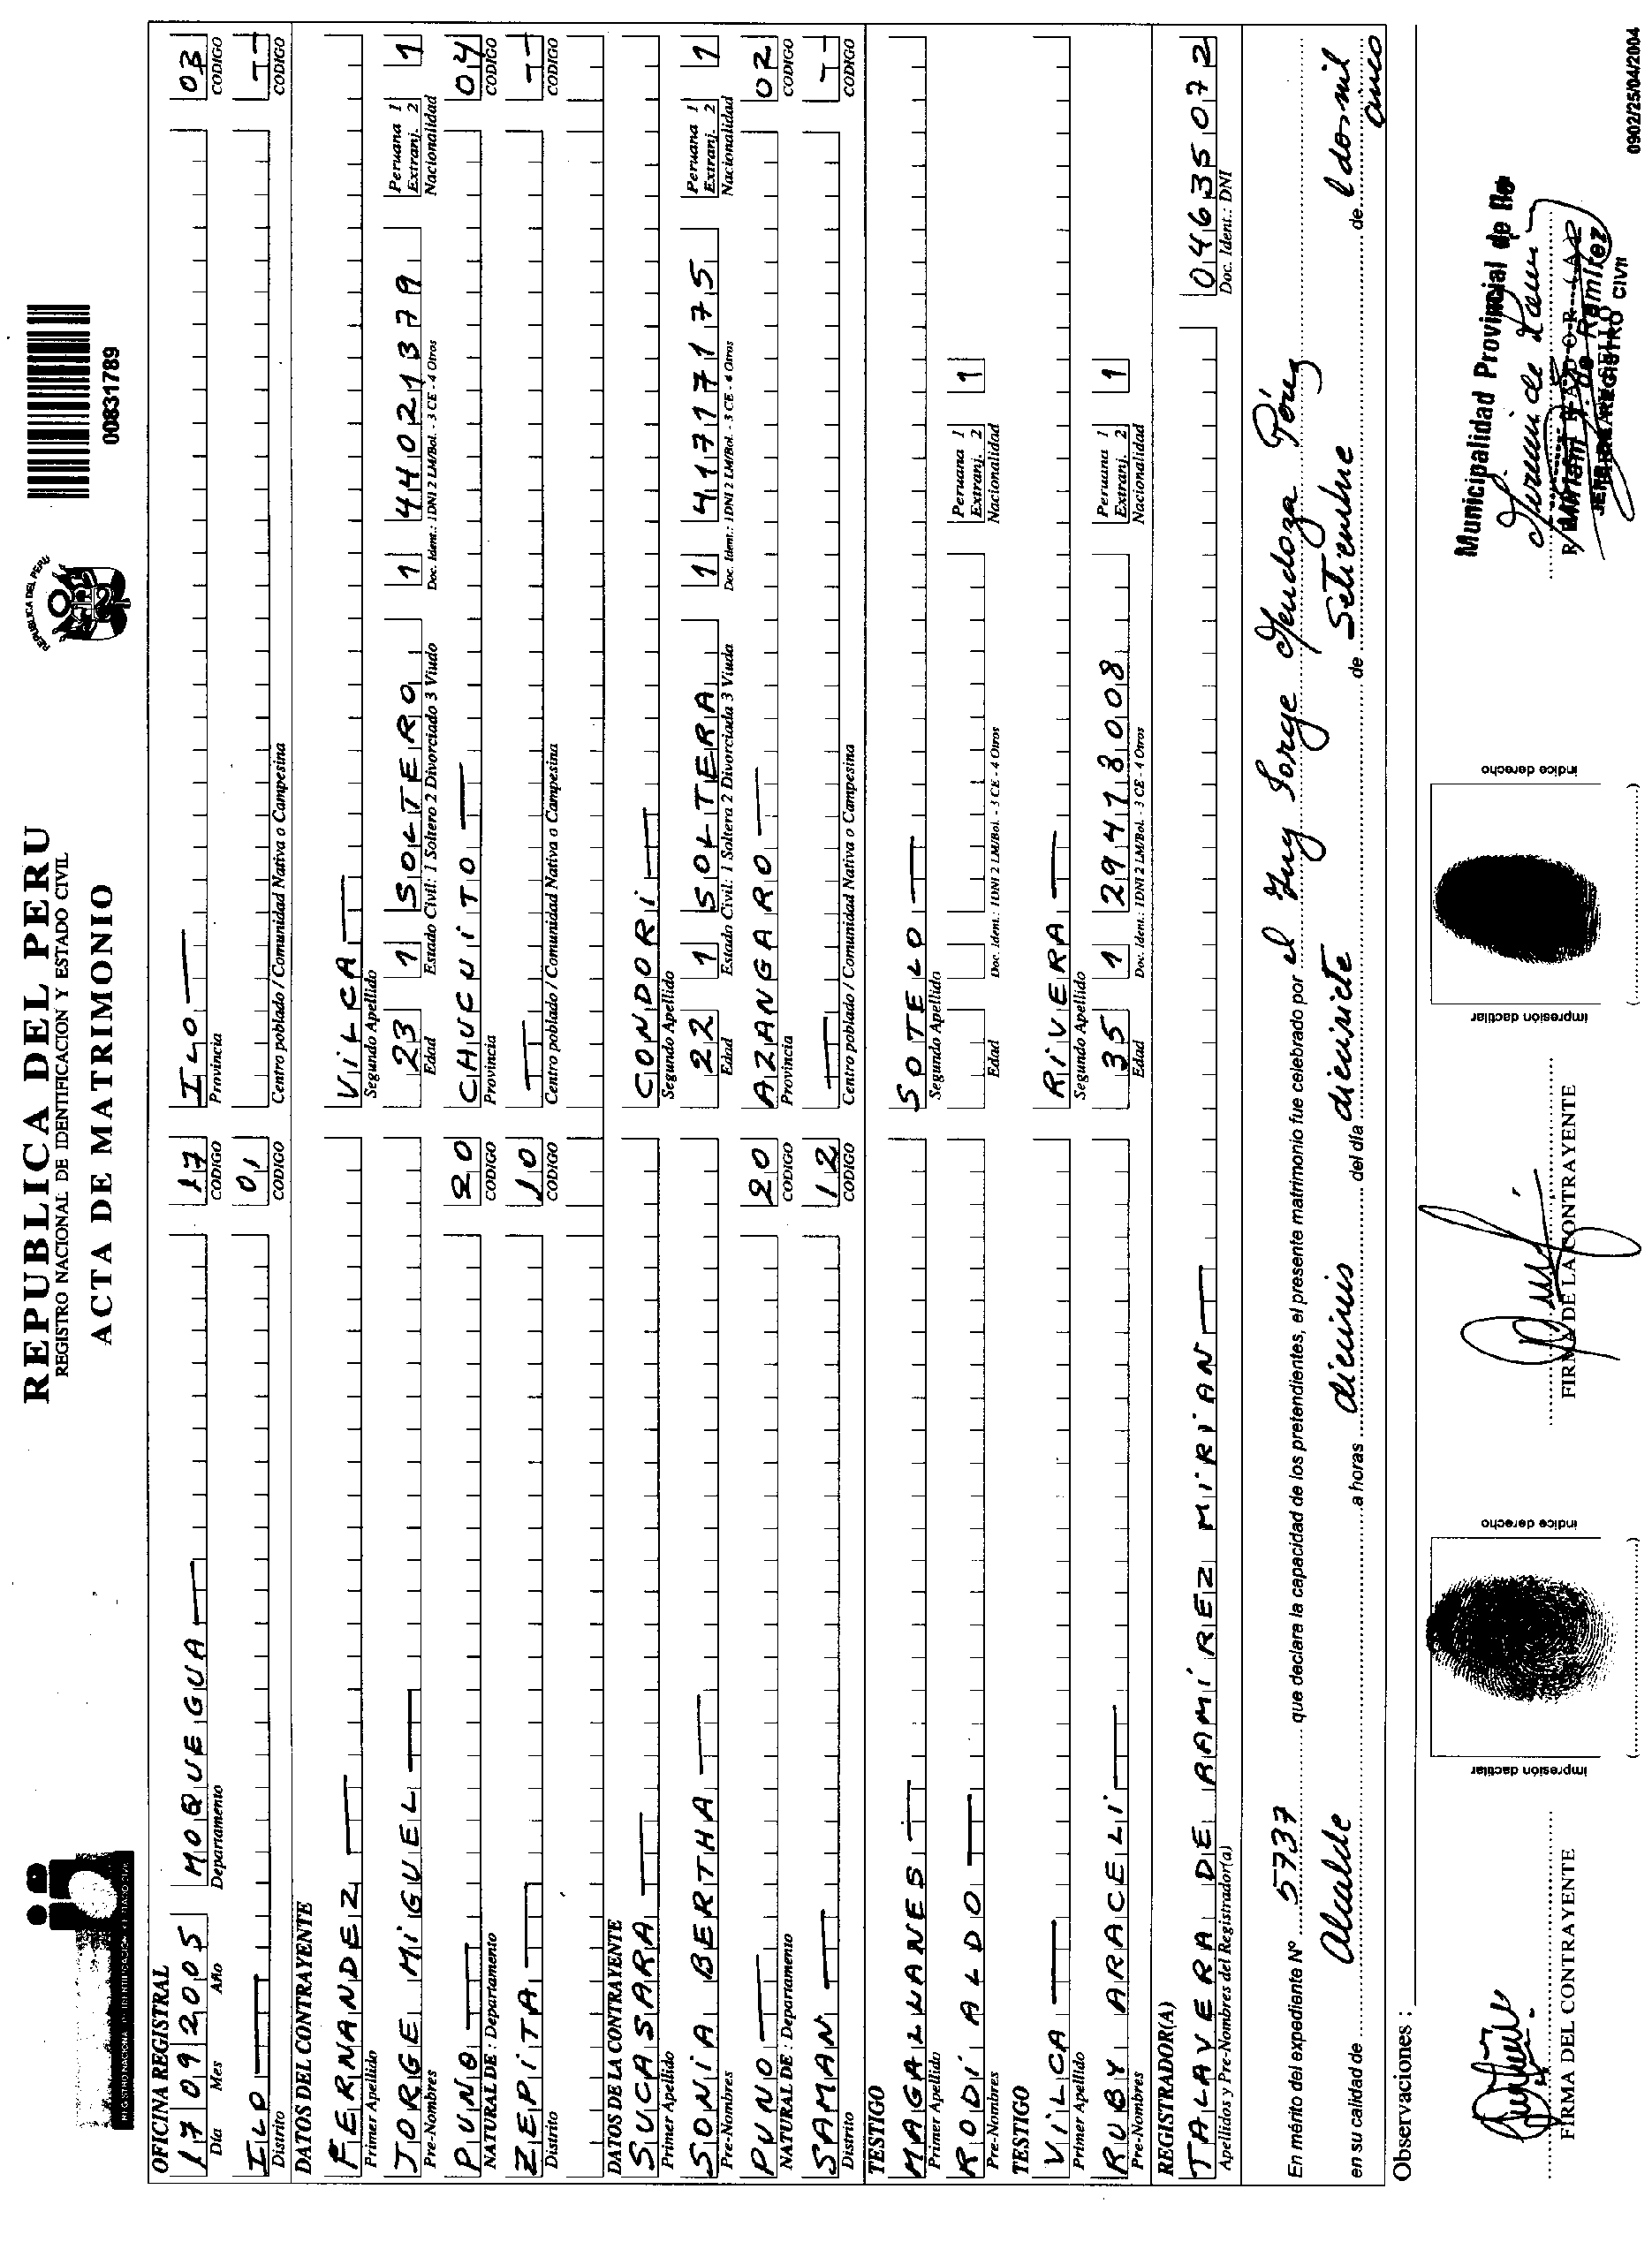 REPUBLICA DEL PERU
REGISTRO NACIONAL DE IDENTIFICACION Y ESTADO CIVIL
ACTA DE MATRIMONIO
REPUBLICA DEL PERU
00831789
REGISTRO NACIONAL DE IDENTIFICACION Y ESTADO CIVIL
OFICINA REGISTRAL
17 09 2005 MOQUEGUA 17 ILO 03
Día Mes Año Departamento CODIGO Provincia CODIGO
ILO 01
Distrito CODIGO Centro poblado / Comunidad Nativa o Campesina CODIGO
DATOS DEL CONTRAYENTE
FERNANDEZ VILCA
Primer Apellido Segundo Apellido
JORGE MIGUEL 23 1 SOLTERO 1 44021379 Peruana 1 Extranj. 2 1
Pre-Nombres Edad Estado Civil: 1 Soltero 2 Divorciado 3 Viudo Doc. Ident.: 1DNI 2 LM/Bol. - 3 CE - 4 Otros Nacionalidad
PUNO 20 CHUCUITO 04
NATURAL DE : Departamento CODIGO Provincia CODIGO
ZEPITA 10
Distrito CODIGO Centro poblado / Comunidad Nativa o Campesina CODIGO
DATOS DE LA CONTRAYENTE
SUCASARA CONDORI
Primer Apellido Segundo Apellido
SONIA BERTHA 22 1 SOLTERA 1 41717175 Peruana 1 Extranj. 2 1
Pre-Nombres Edad Estado Civil: 1 Soltera 2 Divorciada 3 Viuda Doc. Ident.: 1DNI 2 LM/Bol. - 3 CE - 4 Otros Nacionalidad
PUNO 20 AZANGARO 02
NATURAL DE : Departamento CODIGO Provincia CODIGO
SAMAN 12
Distrito CODIGO Centro poblado / Comunidad Nativa o Campesina CODIGO
TESTIGO
MAGALLANES SOTELO
Primer Apellido Segundo Apellido
RODI ALDO Peruana 1 Extranj. 2 1
Pre-Nombres Edad Doc. Ident.: 1DNI 2 LM/Bol. - 3 CE - 4 Otros Nacionalidad
TESTIGO
VILCA RIVERA
Primer Apellido Segundo Apellido
RUBY ARACELI 35 1 29473008 Peruana 1 Extranj. 2 1
Pre-Nombres Edad Doc. Ident.: 1DNI 2 LM/Bol. - 3 CE - 4 Otros Nacionalidad
REGISTRADOR(A)
TALAVERA DE RAMIREZ MIRIAN 04635072
Apellidos y Pre-Nombres del Registrador(a) Doc. Ident.: DNI
En mérito del expediente Nº 5737 que declara la capacidad de los pretendientes, el presente matrimonio fue celebrado por el Ing Jorge Mendoza Pérez
en su calidad de Alcalde a horas dieciseis del día diecisiete de Setiembre de l dos mil cinco
Observaciones :
Municipalidad Provincial de Ilo
de Ramírez
REGISTRO CIVIL
FIRMA DEL CONTRAYENTE
impresión dactilar
indice derecho
FIRMA DE LA CONTRAYENTE
impresión dactilar
indice derecho
0902/25/04/2004